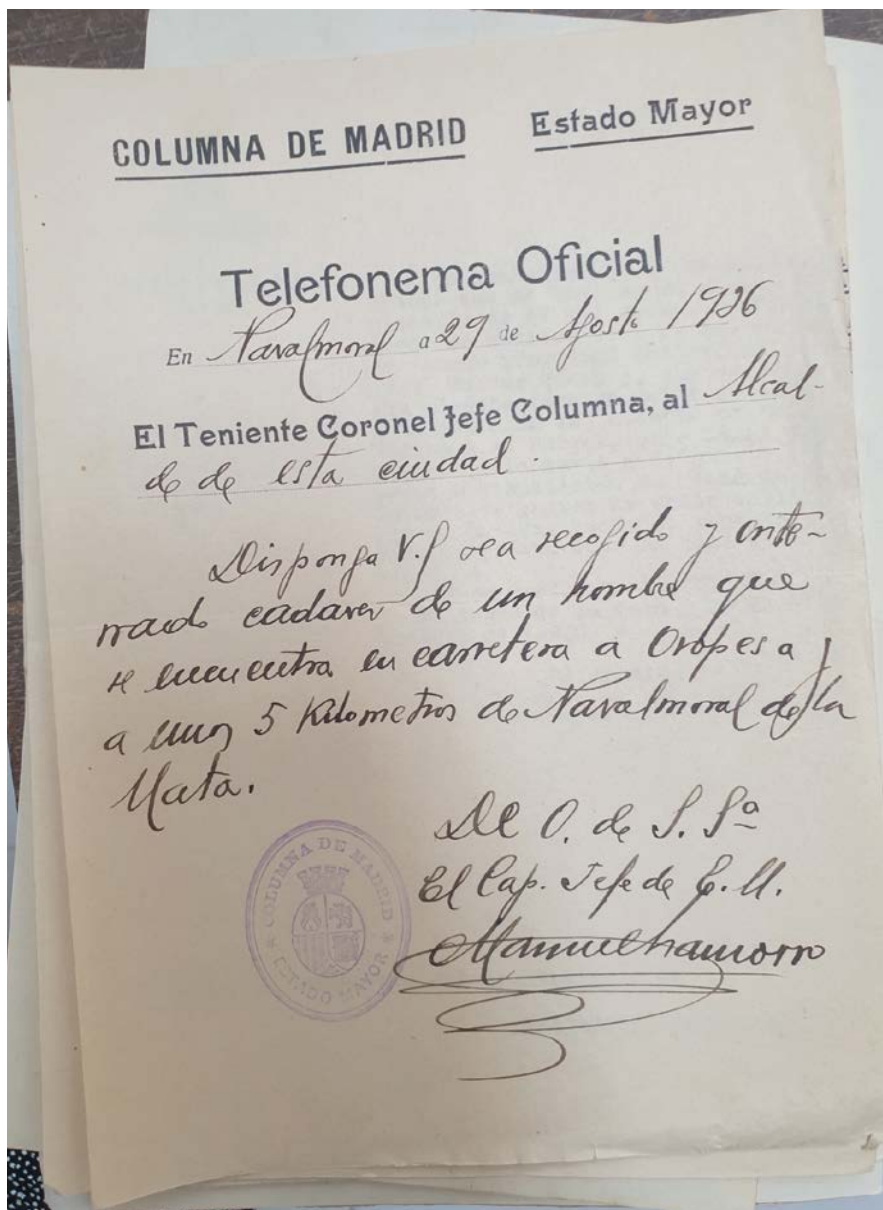 COLUMNA DE MADRID Estado Mayor
Telefonema Oficial
En Navalmoral a 29 de Agosto 1936
El Teniente Coronel Jefe Columna, al Alcal-
de de esta ciudad.
Disponga V.S sea recogido y ente-
rrado cadaver de un hombre que
se encuentra en carretera a Oropesa y
a unos 5 Kilometros de Navalmoral de la
Mata.
De O. de S. Sª
El Cap. Jefe de E. M.
Manuel Chamorro
COLUMNA DE MADRID
ESTADO MAYOR